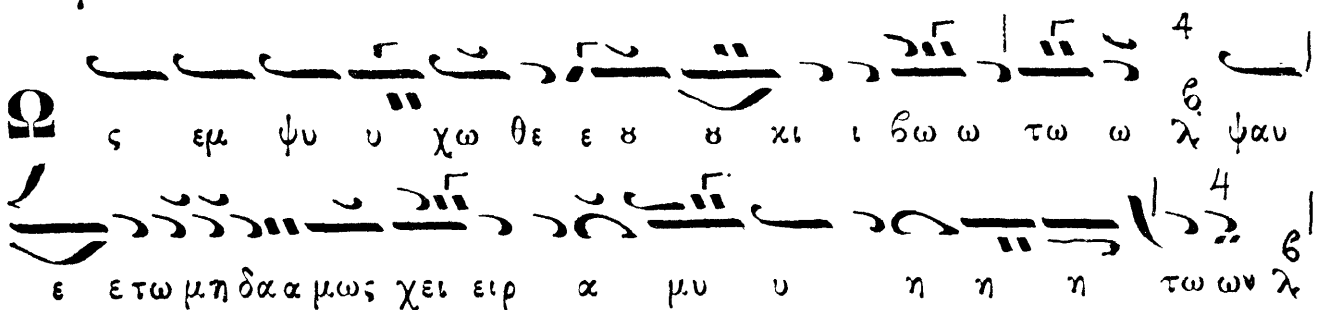 Ως εμ ψυ υ χω θε ε ȣ ȣ κι ι βω ω τω ω λ ψαυ
ε ε τω μη δα α μως χει ειρ α μυ υ η η η τω ων λ